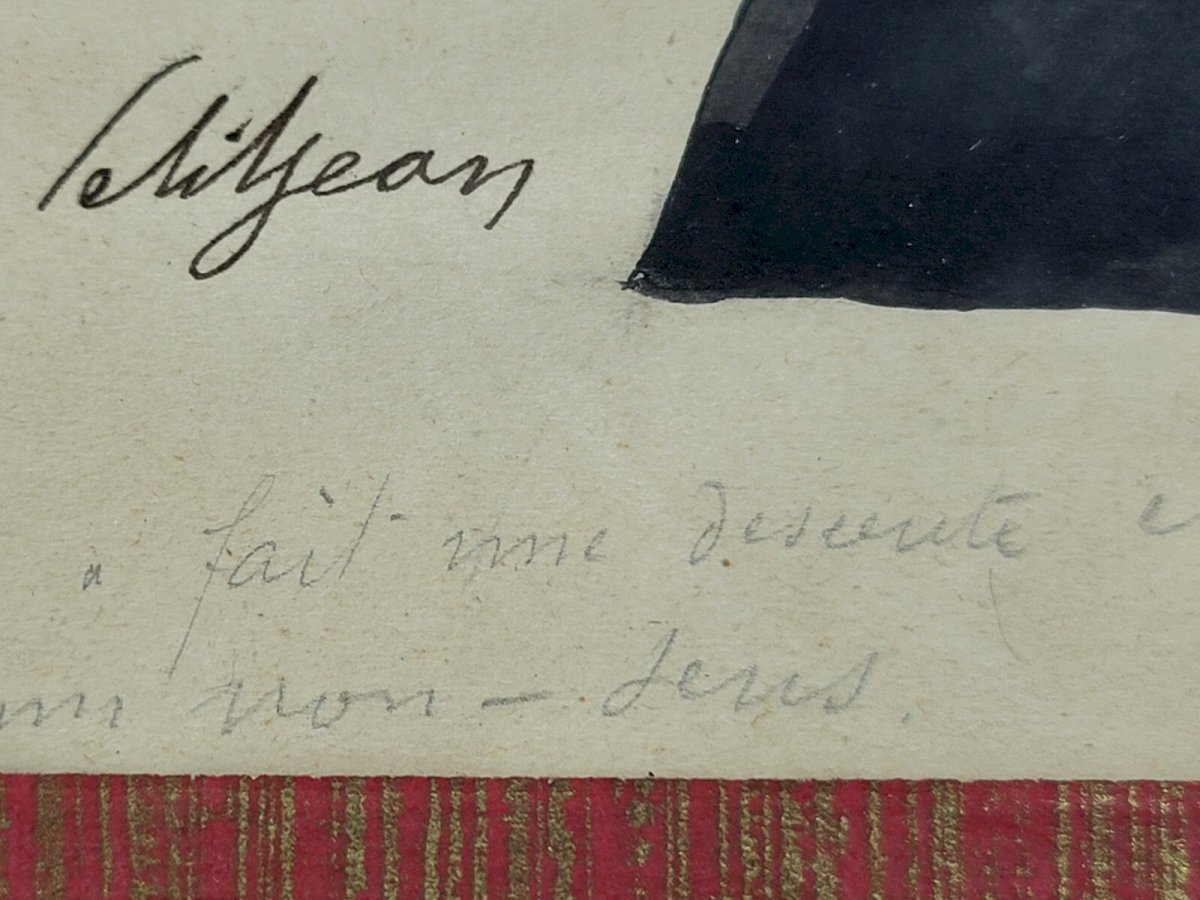 Petitjean
" fait une descente e
un non - sens.